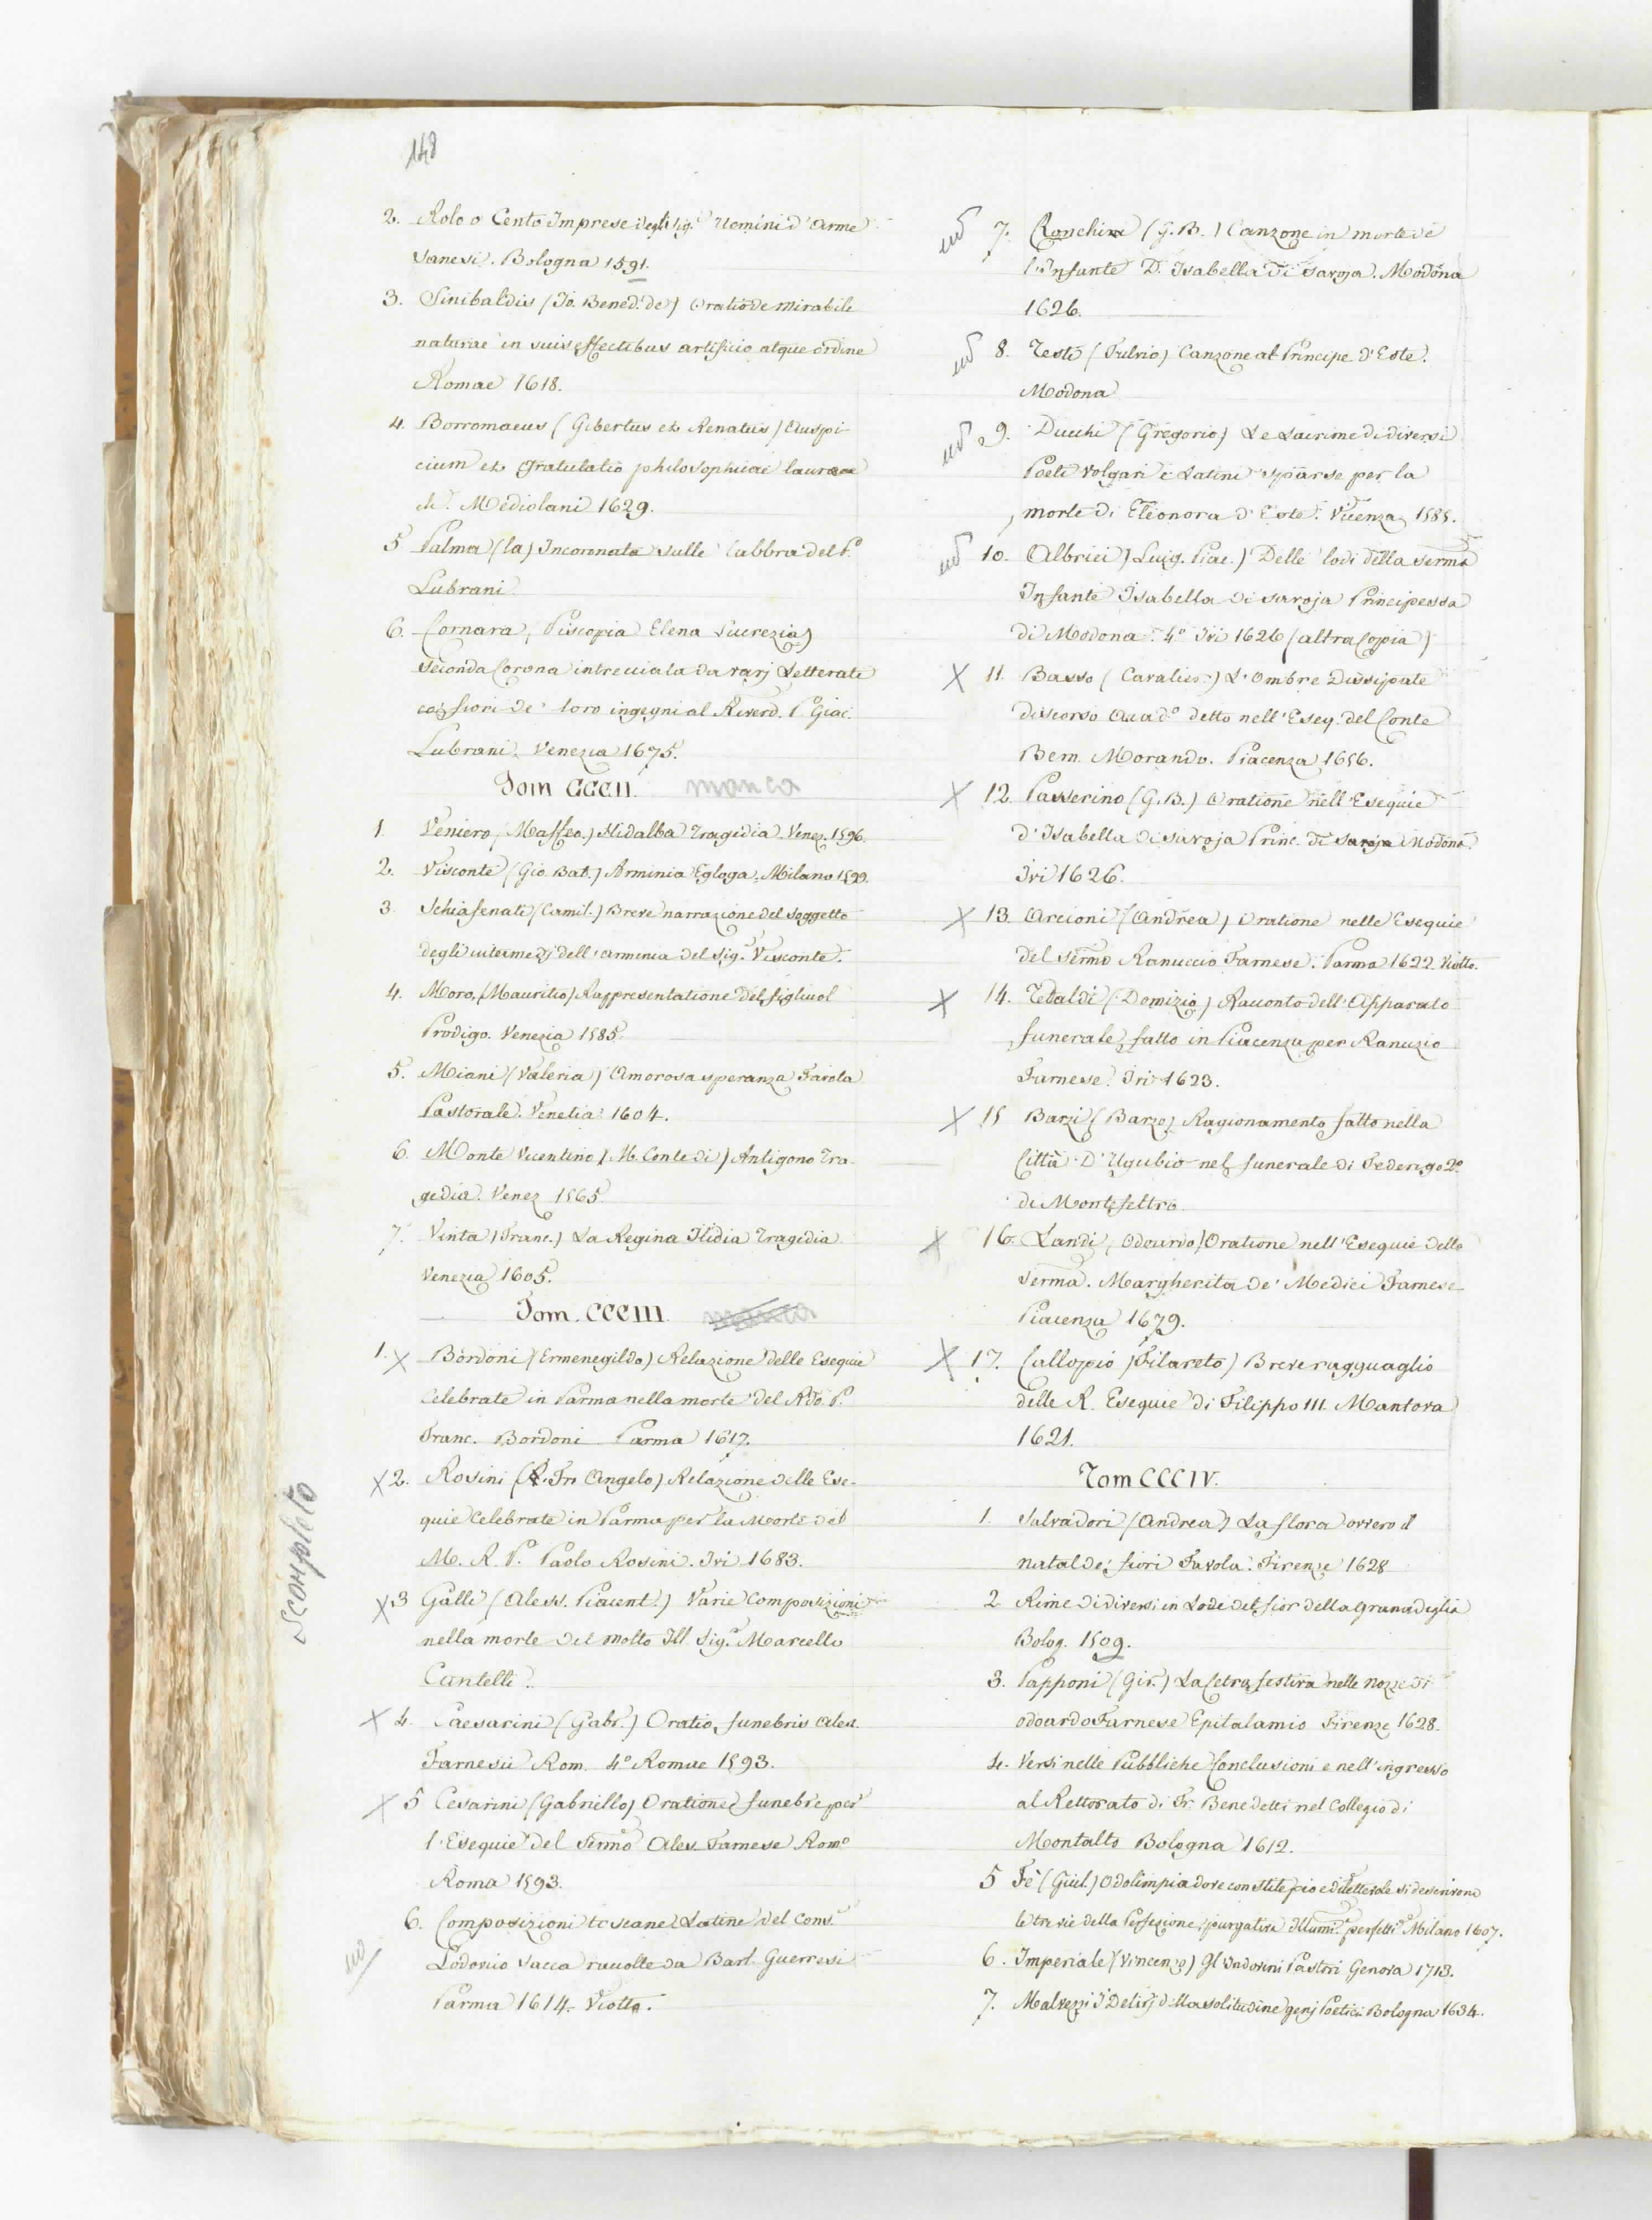 148
2. Rolo o Cento Imprese degli Sig.i Uomini d'Arme
Sanesi. Bologna 1591.
3. Sinibaldis (Jo. Bened. de) Oratio de mirabile
naturae in suis effectibus artificio atque ordine
Romae 1618.
4. Borromaeus (Gibertus et Renatus) Auspi-
cium et gratulatio philosophicae laureae
Mediolani 1629.
5 Palma (la) Incoronata sulle labbra del P.
Lubrani
6. Cornara, Piscopia Elena Lucrezia)
Seconda Corona intrecciata da varj Letterati
coi fiori de' loro ingegni al Reverd. P. Giac.
Lubrani. Venezia 1675.
Tom CCCII. manca
1. Veniero (Maffeo.) Hidalba Tragedia. Venez. 1596.
2. Visconte (Gio. Bat.) Arminia Egloga. Milano 1599.
3. Schiafenati (Camil.) Breve narrazione del soggetto
degli intermezj dell'Arminia del Sig. Visconte.
4. Moro, (Mauritio) Rappresentatione del figliuol
Prodigo. Venezia 1585.
5. Miani (Valeria) Amorosa speranza Favola
Pastorale. Venetia 1604.
6. Monte Vicentino (M. Conte di) Antigono Tra-
gedia. Venez 1565.
7. Vinta (Franc.) La Regina Ilidia Tragedia
Venezia 1605.
Tom. CCCIII. manca
1. X Bordoni (Ermenegildo) Relazione delle Esequie
celebrate in Parma nella morte del Rdo. P.
Franc. Bordoni Parma 1617.
X 2. Rosini (R. Fr. Angelo) Relazione delle Ese-
quie celebrate in Parma per la Morte del
M. R. P. Paolo Rosini. Ivi 1683.
scompleto
X 3 Galli (Aless. Piacent.) Varie composizioni
nella morte del molto Ill. Sig.r Marcello
Cantelli.
X 4. Caesarini (Gabr.) Oratio funebris Alex.
Farnesii Rom. 4° Romae 1593.
X 5 Cesarini (Gabriello) Oratione funebre per
l'Esequie del Sermo Ales. Farnese Rom.o
Roma 1593.
6. Composizioni toscane e Latine del Com.e
Lodovico Vacca raccolte da Bart. Guerresi
Parma 1614. Viotto.
7. Ronchini (G. B.) Canzone in morte de
l'Infante D. Isabella di Savoja. Modona
1626.
8. Testi (Fulvio) Canzone al Principe d'Este.
Modona
9. Ducchi (Gregorio) Le Lacrime di diversi
Poeti volgari e Latini sparse per la
morte di Eleonora d'Este. Vicenza 1585.
10. Albrici (Luig. Piac.) Delle lodi della Serma
Infante Isabella di Savoja Principessa
di Modona. 4° Ivi 1626 (altra Coppia)
X 11. Basso (Cavalier.) L'Ombre Dissipate
discorso Accad.o detto nell'Eseq. del Conte
Bern. Morando. Piacenza 1656.
X 12. Passerino (G. B.) Oratione nell'Esequie
d'Isabella di Savoja Princ. di Savoja Modona
Ivi 1626.
X 13. Arcioni (Andrea) Oratione nelle Esequie
del Sermo Ranuccio Farnese. Parma 1622. Viotto.
X 14. Tebaldi (Domizio) Racconto dell'Apparato
funerale fatto in Piacenza per Ranuzio
Farnese. Ivi 1623.
X 15 Barzi (Barzo) Ragionamento fatto nella
Città D'Ugubio nel funerale di Federigo 2°
di Montefeltro.
X 16. Landi, Odoardo) Oratione nell'Esequie della
Serma. Margherita de' Medici Farnese
Piacenza 1679.
X 17. Callopio (Filareto) Breve ragguaglio
delle R. Esequie di Filippo III. Mantova
1621.
Tom CCCIV.
1. Salvadori (Andrea) La flora ovvero il
natal de' fiori Favola. Firenze 1628
2 Rime di diversi in Lode del fior della granadiglia
Bolog. 1509.
3. Papponi (Gir.) La Cetra festiva nelle nozze di
Odoardo Farnese Epitalamio Firenze 1628.
4. Versi nelle Pubbliche Conclusioni e nell'ingresso
al Rettorato di Fr. Benedetti nel Collegio di
Montalto Bologna 1612.
5 Fè (Giul.) Odolimpia dove con stile pio e dilettevole si descrivono
le tre vie della Perfezione, purgativa Illum.a perfetti.a Milano 1607.
6. Imperiale (Vincenzo) Gl'Indovini Pastori Genova 1713.
7. Malvezzi I Delirj della solitudine genj Poetici Bologna 1634.